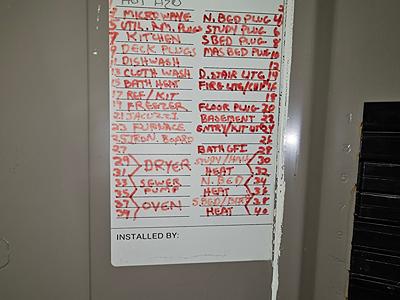 HOT H2O
3 MICROWAVE N. BED PLUG 4
5 UTIL. RM. PLUGS STUDY PLUG 6
7 KITCHEN S BED PLUG 8
9 DECK PLUGS MAS BED PLUG 10
11 DISHWASH 12
13 CLOTH WASH D. STAIR LTG 14
15 BATH HEAT FIRE LTG 16
17 REF/KIT 18
19 FREEZER FLOOR PLUG 20
21 JACUZZI BASEMENT 22
23 FURNACE ENTRY/KIT 24
25 IRON. BOARD 26
27 BATH GFI 28
29 DRYER STUDY/HALL 30
31 HEAT 32
33 SEWER N. BED 34
35 PUMP HEAT 36
37 OVEN S BED/BATH 38
39 HEAT 40
INSTALLED BY: